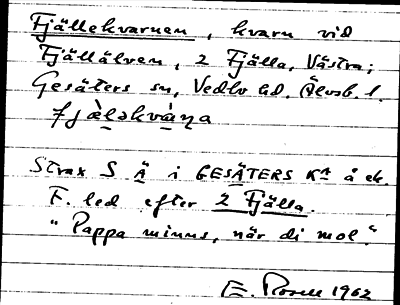 Fjällekvarnen, kvarn vid
Fjällälven, 2 Fjälla, Västra;
Gesäters sn, Vedbo hd. Älvsb. l.
fjæ̀ləkvàṇa
Strax S Ä i GESÄTERS Kᴬ å ek.
F. led efter 2 Fjälla.
"Pappa minns, när di mol."
E. 1962